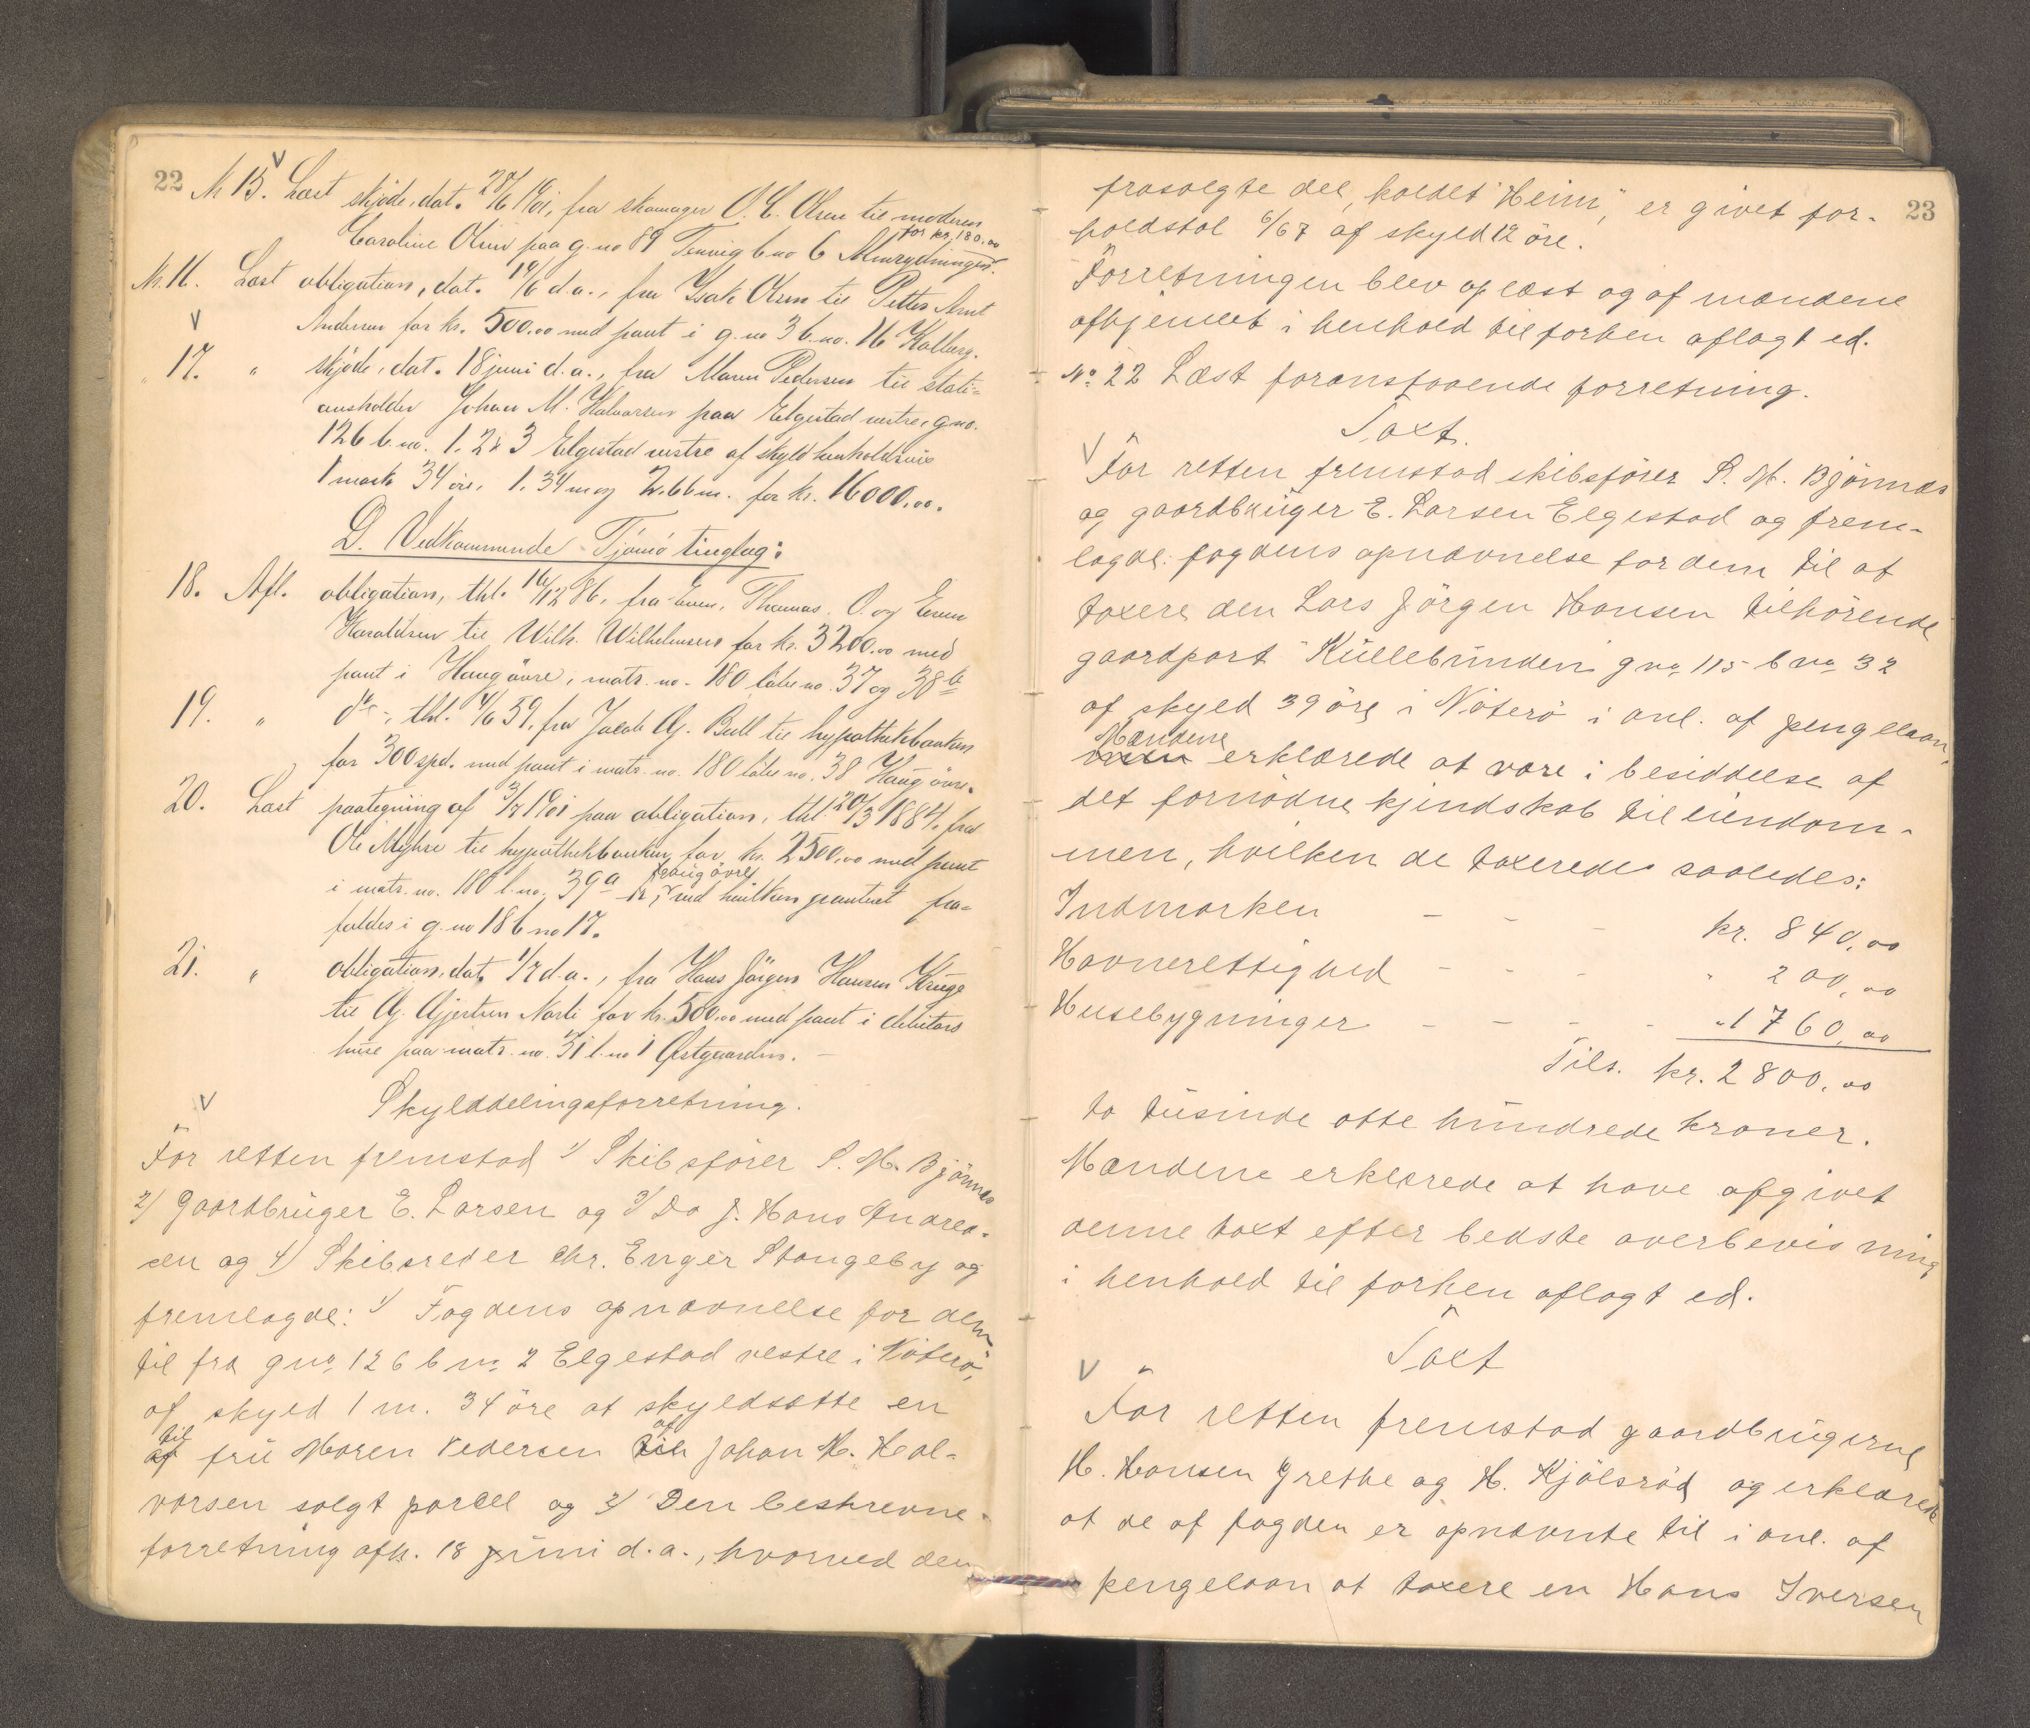 22
№ 15. Læst skjöde, dat. 28/6 1901, fra skomager O. E. Olsen til moderen
for kr. 180.00
Caroline Olsen paa g. no 89 b no 6
№. 16. Læst obligation, dat. 19/6 d.a., fra Isak Olsen til Petter Arnt
Andersen for kr. 500.00 med pant i g. no 3 b. no. 16 Kalberg.
„ 17. „ skjöde, dat. 18 juni d.a., fra Maren Pedersen til stati-
onsholder Johan M. Halvorsen paa Elgestad vestre, g no.
126 b. no. 1. 2 & 3 Elgestad vestre af skyld henholdsvis
1 mark 34 öre, 1.34 m og 2.66 m. for kr. 16000.00.
D. Vedkommende Tjömö tinglag:
18. Afl. obligation, thl. 16/12 86, fra Even, Thomas, O. og Even
Haraldsen til Wilh. Wilhelmsen for kr. 3200.00 med
pant i Haug övre, matr. no. 180 löbe no. 37 og 38 b
19. „ do, thl. 4/6 59, fra Jacob Gj. Bull til hypothekbanken
for 300 spd. med pant i matr. no. 180 löbe no. 38 Haug övre.
20. Læst paategning af 3/7 1901 paa obligation, thl. 20/3 1884, fra
Ole Myhre til hypothekbanken for kr. 2500.00 med pant
Haug övre
i matr. no. 180 l. no. 39a ved hvilken panteret fra-
faldes i g. no 18 b no 17.
21. „ obligation, dat. 1/7 d.a., fra Hans Jörgen Hansen Kruge
til Gj. Gjertsen Narti for kr. 500.00 med pant i debitors
huse paa matr. no. 51 l. no 1 Östgaarden.
Skylddelingsforretning.
For retten fremstod 1) Skibsförer S. M. Bjönnes
2) Gaardbruger E. Larsen og 3) Do J. Hans Andrea-
sen og 4) Skibsreder Chr. Enger Stangeby og
fremlagde: 1) Fogdens opnævnelse for dem
til fra gno. 126 b no. 2 Elgestad vestre i Nöterö,
af skyld 1 m. 34 öre at skyldsætte en
til af
af frü Maren Pedersen til Johan M. Hal-
vorsen solgt parcel og 2) Den beskrevne
forretning afh. 18 juni d.a., hvorved den
23
frasolgte del, kaldet "Heim", er givet for-
holdstal 6/67 af skyld 12 öre.
Forretningen blev oplæst og af mændene
afhjemlet i henhold til forhen aflagt ed.
No. 22 Læst foranstaaende forretning.
Taxt.
For retten fremstod skibsförer S. M. Bjönnes
og gaardbrüger E. Larsen Elgestad og frem-
lagde fogdens opnævnelse for dem til at
taxere den Lars Jörgen Hansen tilhörende
gaardpart "Küllebünden" g no. 115 b no. 32
af skyld 39 öre i Nöterö i anl. af pengelaan.
Mændene
erklærede at være i besiddelse af
det fornödne kjendskab til eiendom-
men, hvilken de taxerede saaledes:
Indmarken - - - kr. 840.00
Havnerettighed - - - " 200.00
Husebygninger - - - - " 1760.00
Tils. kr. 2800.00
to tüsinde otte hündrede kroner.
Mændene erklærede at have afgivet
denne taxt efter bedste overbevisning
i henhold til forhen aflagt ed.
Taxt
For retten fremstod gaardbrugerne
H. Hansen Grethe og H. Kjölsröd og erklærede
at de af fogden er opnævnte til i anl. af
pengelaan at taxere en Hans Iversen